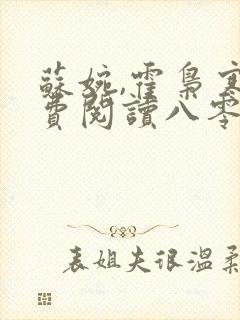 蘇婉,霍梟寒
費閱讀八零
表姐夫很溫柔